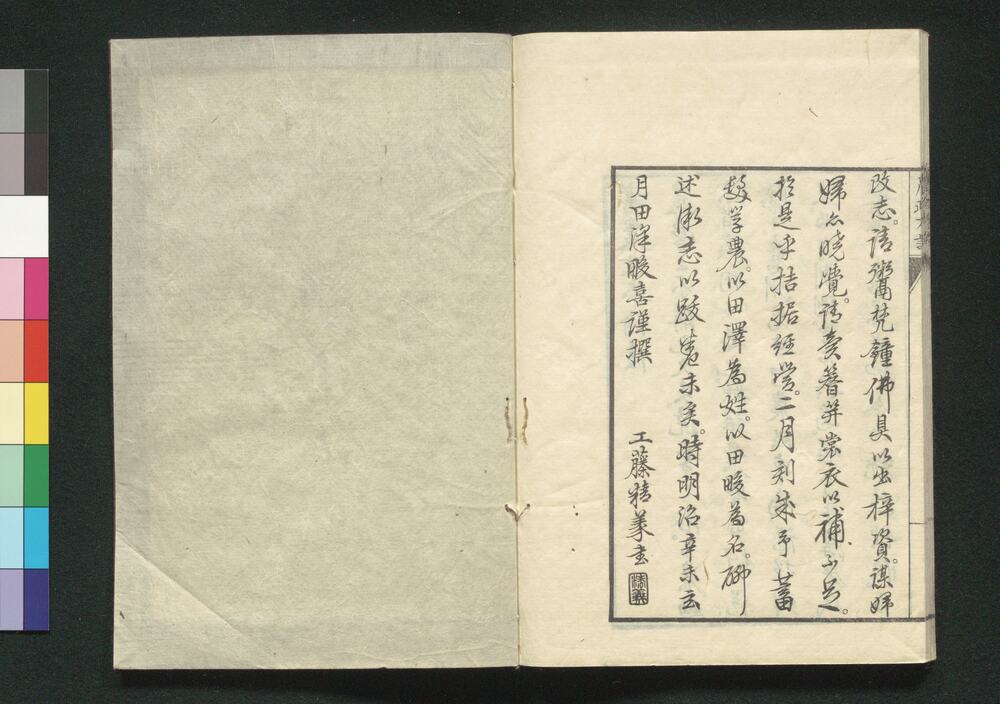 改志。請鬻梵鐘佛具以出梓資。謀婦
婦亦曉覺。請賣簪笄裳衣以補不足。
於是乎拮据經營。二月刻成予蓄
髮学農。以田澤為姓。以田畯為名。聊
述微志以跋卷末矣。時明治辛未云
月田澤畯喜謹撰
工藤精義書